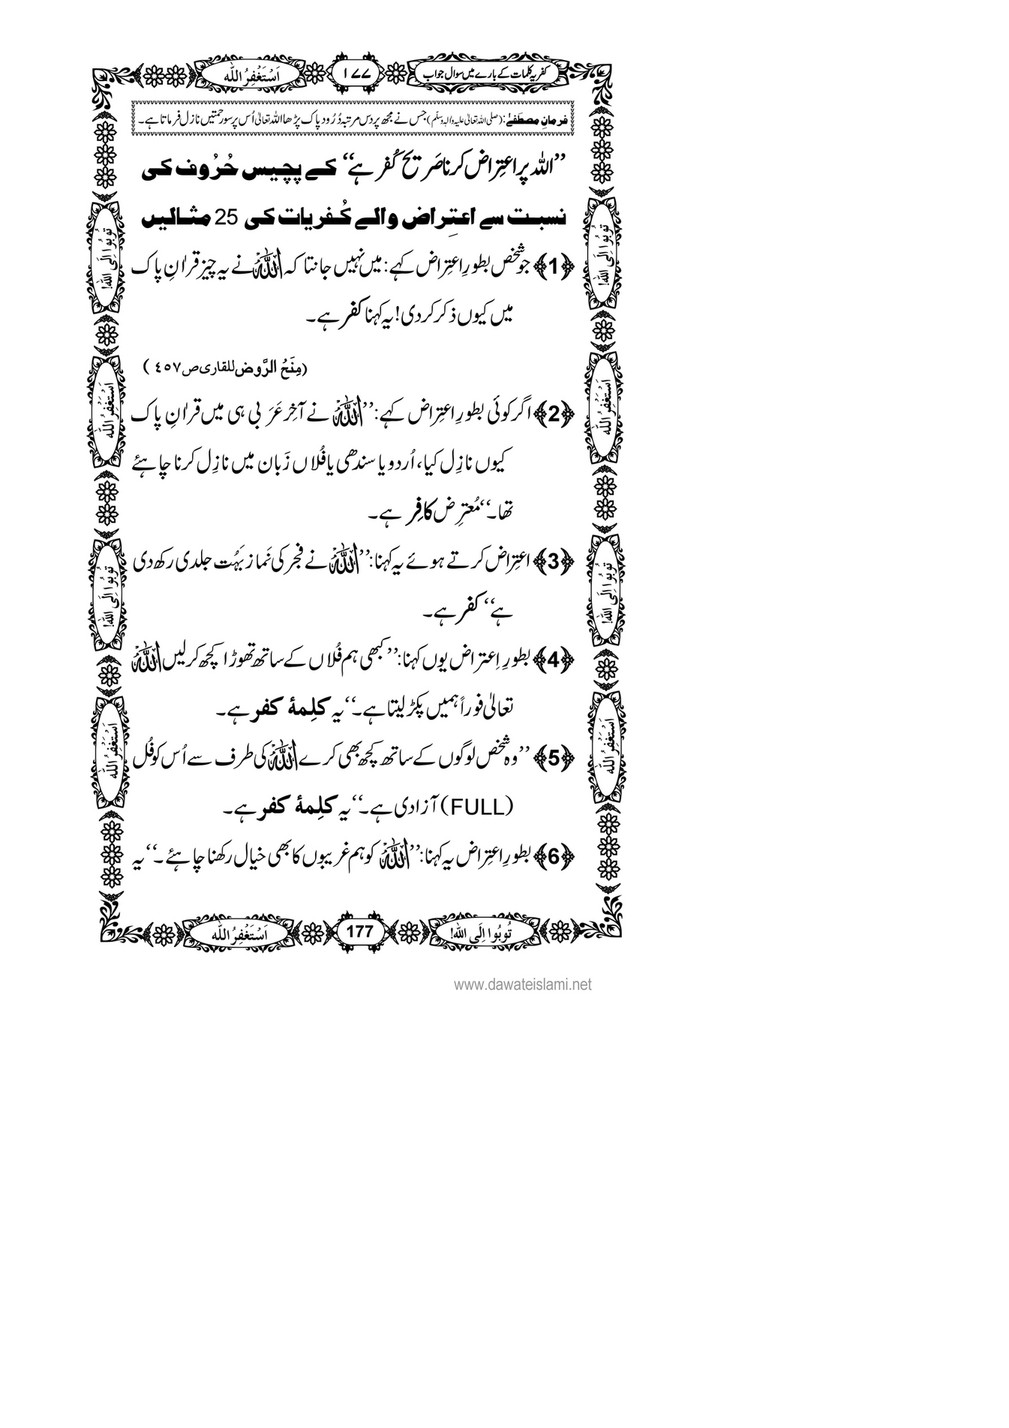 کفریہ کلمات کے بارے میں سوال جواب ١٧٧ اَسْتَغْفِرُ اللّٰه
فرمانِ مصطَفٰے: (صلی اللہ تعالیٰ علیہ والہ وسلّم) جس نے مجھ پر دس مرتبہ دُرُود پاک پڑھا اللہ تعالیٰ اُس پر سو رحمتیں نازل فرماتا ہے۔
’’اللہ پر اعتِراض کرنا صَریح کُفر ہے‘‘ کے پچیس حُرُوف کی
نسبت سے اعتِراض والے کُفریات کی 25 مثالیں
﴿1﴾ جو شخص بطورِ اعتِراض کہے: میں نہیں جانتا کہ اللہ عَزَّوَجَلَّ نے یہ چیز قراٰنِ پاک
میں کیوں ذکر کر دی! یہ کہنا کفر ہے۔
(مِنَحُ الرَّوض للقاری ص ٤٥٧)
﴿2﴾ اگر کوئی بطورِ اعتِراض کہے: ’’اللہ عَزَّوَجَلَّ نے آخِر عَرَبی ہی میں قراٰنِ پاک
کیوں نازِل کیا، اُردو یا سندھی یا فُلاں زَبان میں نازِل کرنا چاہئے
تھا۔‘‘ مُعترِض کافِر ہے۔
﴿3﴾ اعتِراض کرتے ہوئے یہ کہنا: ’’اللہ عَزَّوَجَلَّ نے فجر کی نَماز بَہُت جلدی رکھ دی
ہے‘‘ کفر ہے۔
﴿4﴾ بطورِ اِعتراض یوں کہنا: ’’کبھی ہم فُلاں کے ساتھ تھوڑا کچھ کر لیں اللہ
تعالیٰ فوراً ہمیں پکڑ لیتا ہے۔‘‘ یہ کلِمۂ کفر ہے۔
﴿5﴾ ’’وہ شخص لوگوں کے ساتھ کچھ بھی کرے اللہ عَزَّوَجَلَّ کی طرف سے اُس کو فُل
(FULL) آزادی ہے۔‘‘ یہ کلِمۂ کفر ہے۔
﴿6﴾ بطورِ اعتِراض یہ کہنا: ’’اللہ عَزَّوَجَلَّ کو ہم غریبوں کا بھی خیال رکھنا چاہئے۔‘‘ یہ
تُوبُوا اِلَی اللّٰه!
اَسْتَغْفِرُ اللّٰه
تُوبُوا اِلَی اللّٰه!
اَسْتَغْفِرُ اللّٰه
تُوبُوا اِلَی اللّٰه!
اَسْتَغْفِرُ اللّٰه
تُوبُوا اِلَی اللّٰه!
اَسْتَغْفِرُ اللّٰه
تُوبُوا اِلَی اللّٰه! 177 اَسْتَغْفِرُ اللّٰه
www.dawateislami.net